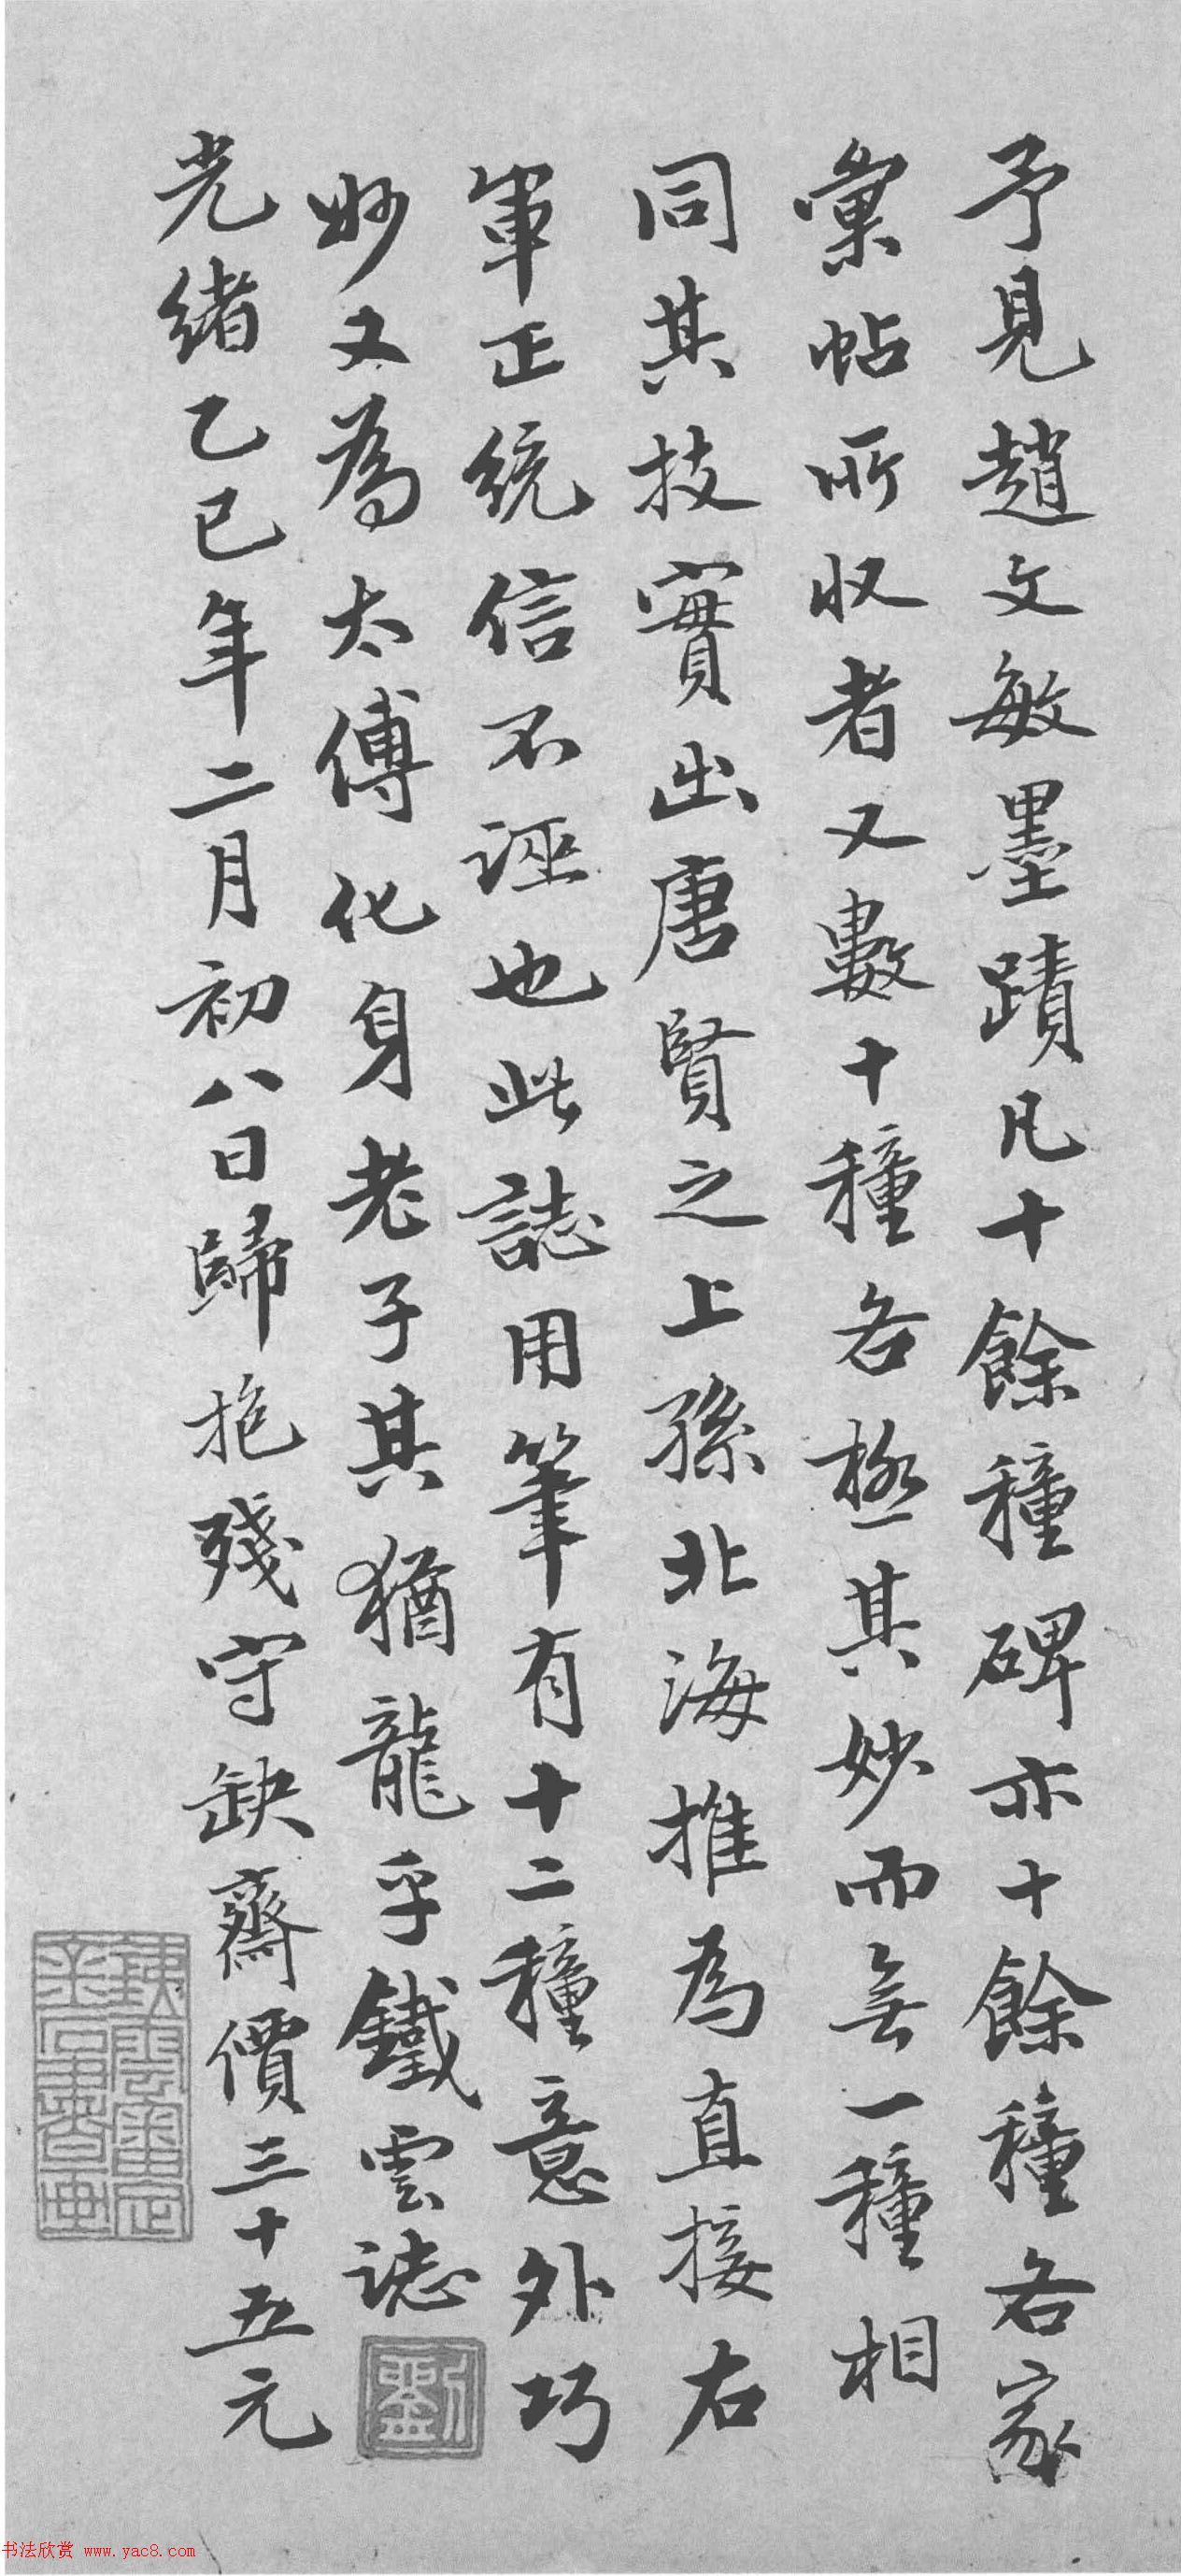 予見趙文敏墨蹟凡十餘種碑亦十餘種各家
彙帖所收者又數十種各極其妙而無一種相
同其技實出唐賢之上孫北海推為直接右
軍正統信不誣也此誌用筆有十二種意外巧
妙又為太傅化身老子其猶龍乎鐵雲誌
劉
光緒乙巳年二月初八日歸抱殘守缺齋價三十五元
鐵雲審定
金石書畫
书法欣赏 www.yac8.com